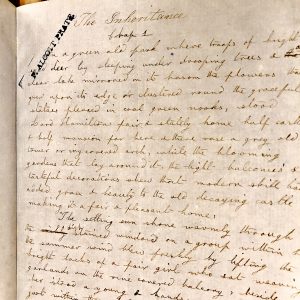 F. ALCOTT PRATT
The Inheritance
Chap 1
a green old park where troops of bright
deer lay sleeping under drooping trees & a
clear lake mirrored in its bosom the flowers that
upon its edge or clustered round the graceful
statues placed in cool green nooks, stood
Lord Hamiltons fair & stately home half castle
& half mansion for here & there rose a grey old
tower or ivy covered arch, while the blooming
gardens that lay around it, the light balconies &
tasteful decorations modern skill had
added grace & beauty to the old decaying castle
making it a fair & pleasant home;
The setting sun shone warmly through
the stained window on a group within &
the summer wind freshly by lifting the
bright locks of a fair girl who sat weaving
garlands on the vine covered balcony & beside
her stood a young &
just within the